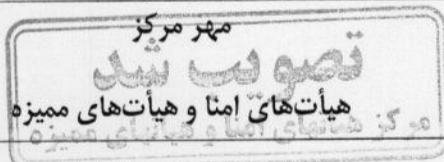 مهر مرکز
تصویب شد
هیأت‌های امنا و هیأت‌های ممیزه
مرکز هیئتهای امنا و هیاتهای ممیزه